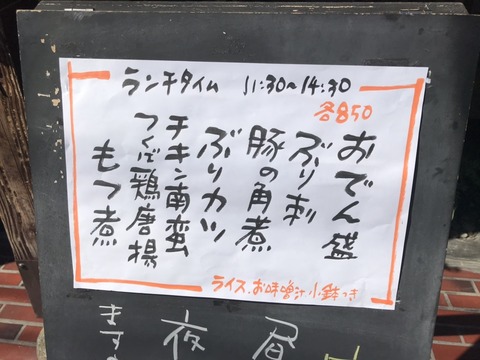 ランチタイム 11:30～14:30
各850
おでん盛
ぶり刺
豚の角煮
ぶりカツ
チキン南蛮
つくば鶏唐揚
もつ煮
ライス、お味噌汁、小鉢つき
昼
夜
ます